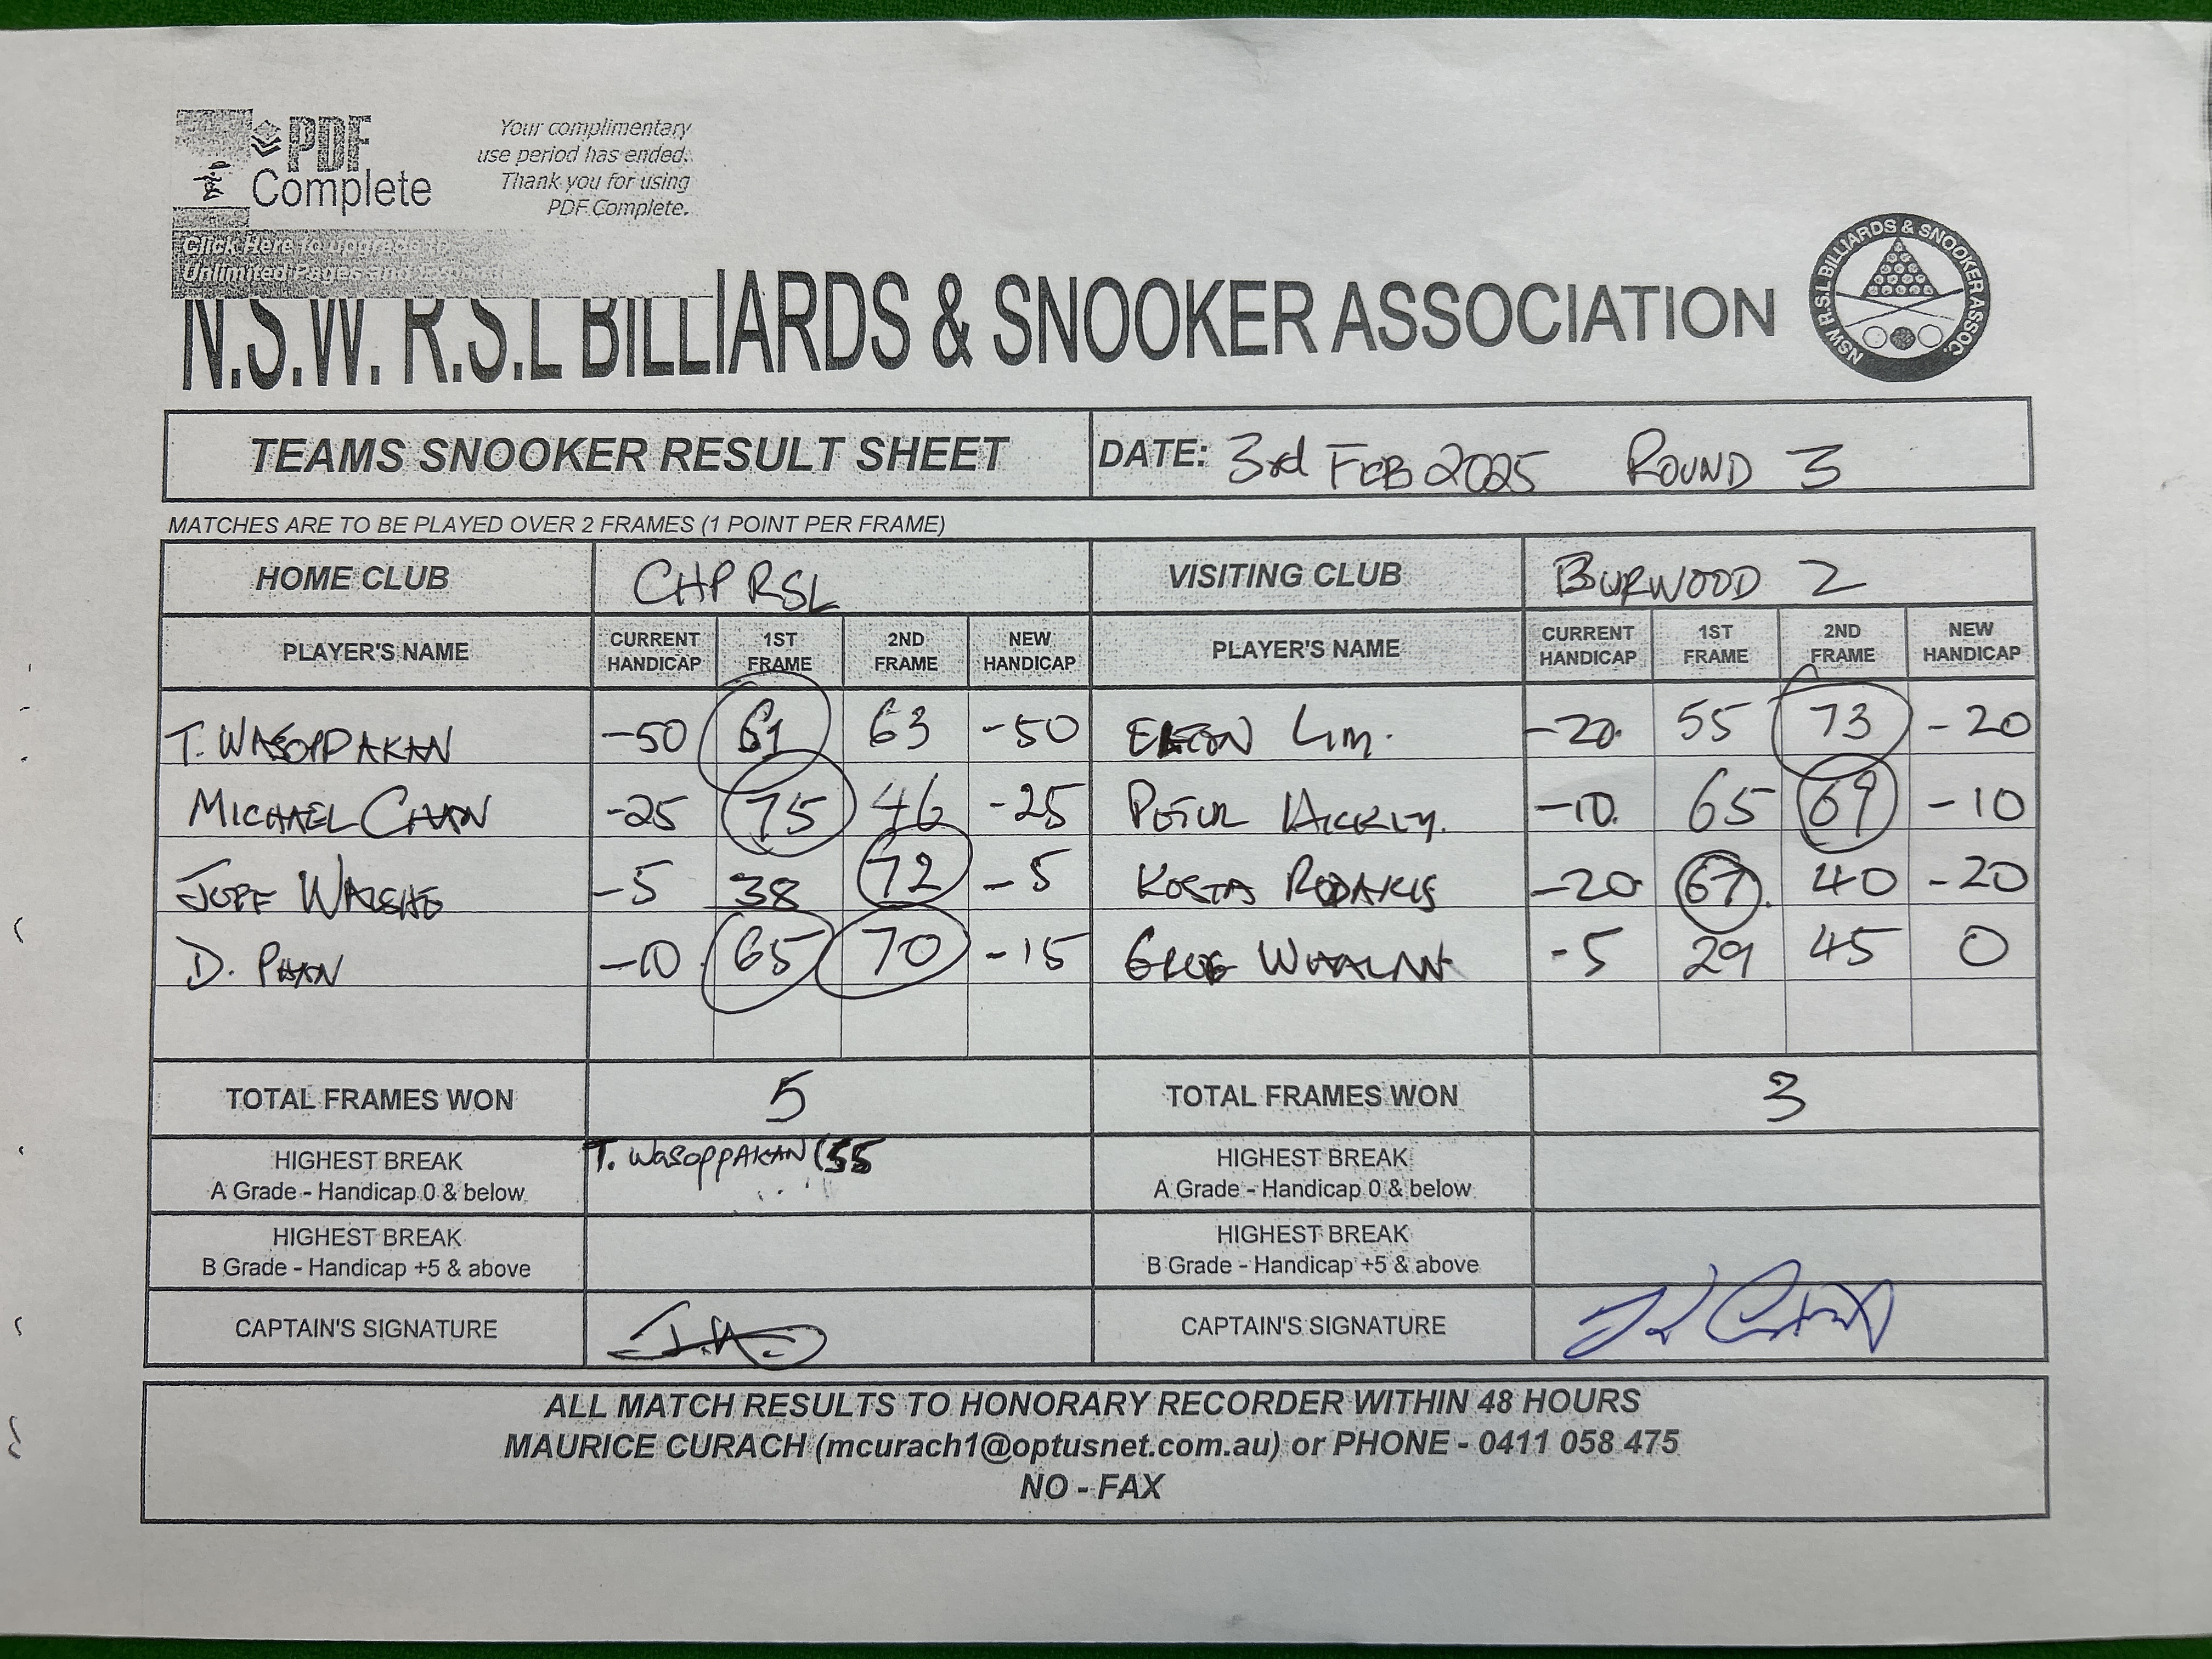 PDF Complete
Your complimentary
use period has ended.
Thank you for using
PDF Complete.
Click Here to upgrade to
Unlimited Pages and
N.S.W. R.S.L BILLIARDS & SNOOKER ASSOCIATION
NSW R.S.L BILLIARDS & SNOOKER ASSOC.
TEAMS SNOOKER RESULT SHEET DATE: 3rd FEB 2025 ROUND 3
MATCHES ARE TO BE PLAYED OVER 2 FRAMES (1 POINT PER FRAME)
HOME CLUB CHP RSL VISITING CLUB BURWOOD 2
PLAYER'S NAME CURRENT HANDICAP 1ST FRAME 2ND FRAME NEW HANDICAP PLAYER'S NAME CURRENT HANDICAP 1ST FRAME 2ND FRAME NEW HANDICAP
T. WASOPPAKAN -50 61 63 -50 LIM. -20 55 73 -20
MICHAEL CHAN -25 75 46 -25 PETER -10 65 69 -10
-5 38 72 -5 KOSTA RODAKIS -20 67 40 -20
D. PHAN -10 65 70 -15 -5 29 45 0
TOTAL FRAMES WON 5 TOTAL FRAMES WON 3
HIGHEST BREAK T. WASOPPAKAN (55 HIGHEST BREAK
A Grade - Handicap 0 & below A Grade - Handicap 0 & below
HIGHEST BREAK HIGHEST BREAK
B Grade - Handicap +5 & above B Grade - Handicap +5 & above
CAPTAIN'S SIGNATURE CAPTAIN'S SIGNATURE
ALL MATCH RESULTS TO HONORARY RECORDER WITHIN 48 HOURS
MAURICE CURACH (mcurach1@optusnet.com.au) or PHONE - 0411 058 475
NO - FAX